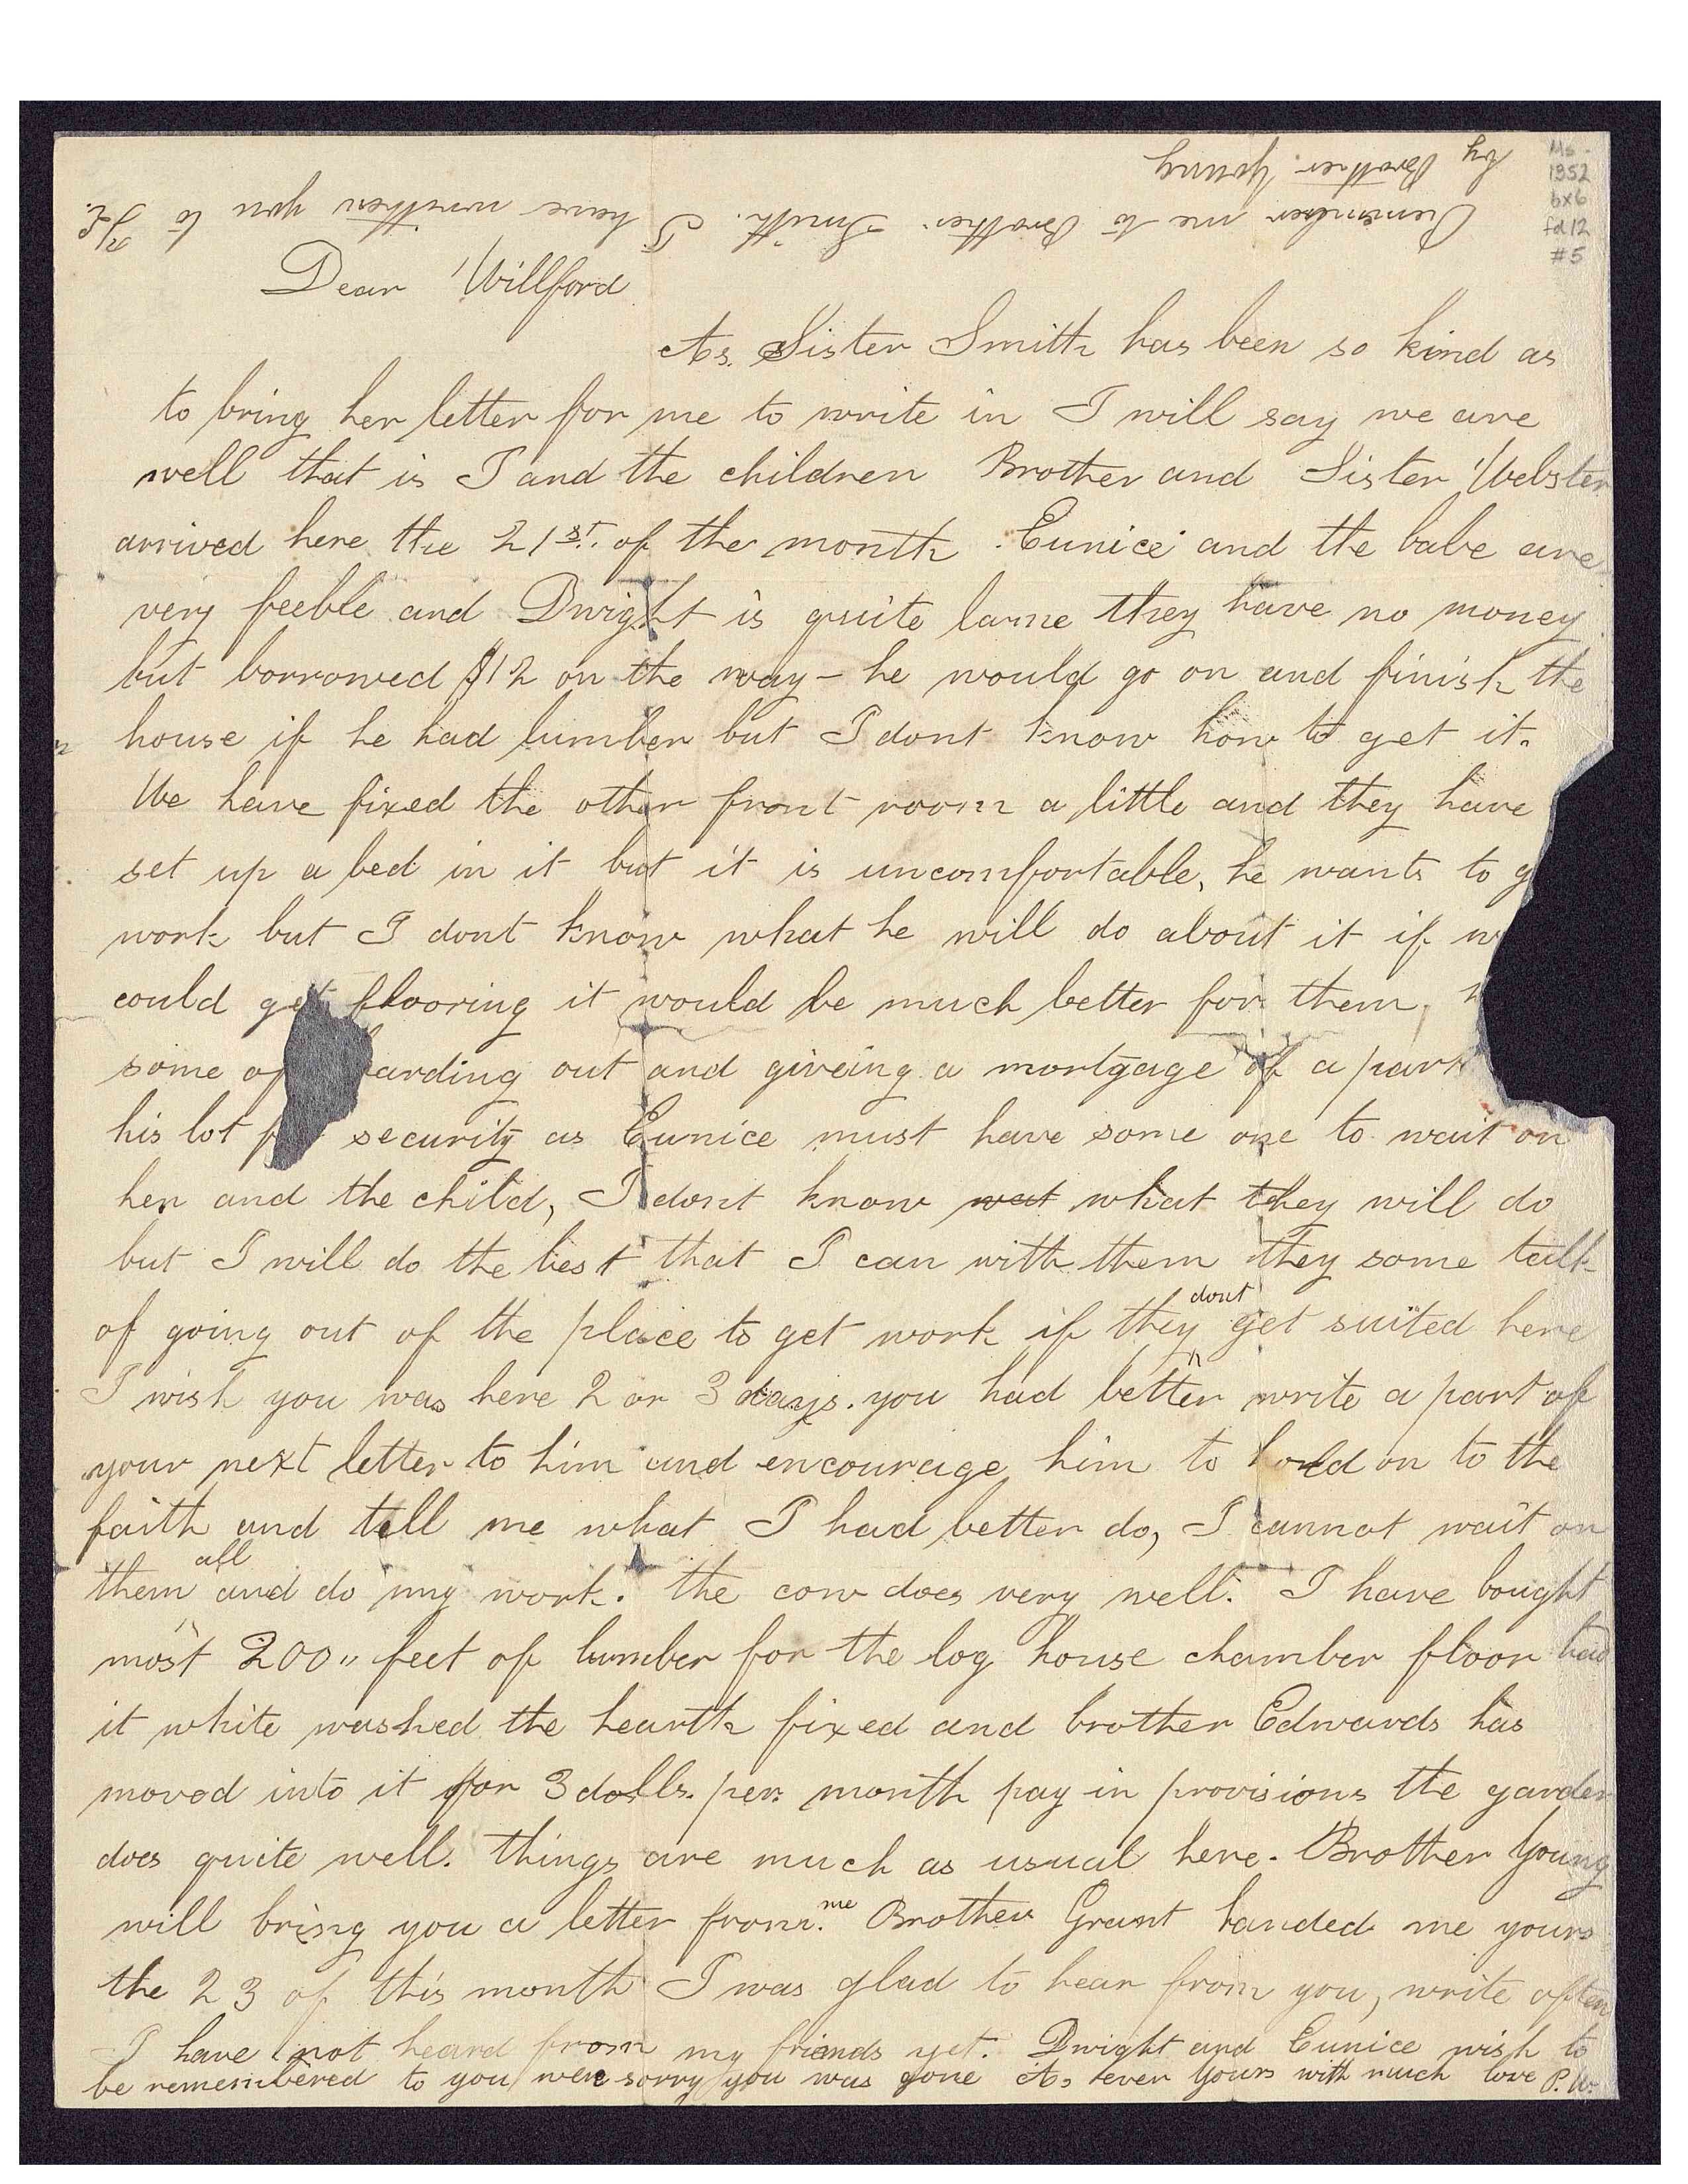 Ms
1352
bx6
fd12
#5
Remember me to Brother Smith. I have written you to
by Brother Young
Dear Willford
As Sister Smith has been so kind as
to bring her letter for me to write in I will say we are
well that is I and the children Brother and Sister Webster
arrived here the 21st. of the month. Eunice and the babe are
very feeble and Dwight is quite lame they have no money
but borrowed $12 on the way – he would go on and finish the
house if he had lumber but I dont know how to get it.
We have fixed the other front room a little and they have
set up a bed in it but it is uncomfortable, he wants to g
work but I dont know what he will do about it if w
could get flooring it would be much better for them,
some of arding out and giveing a mortgage of a part
his lot security as Eunice must have some one to wait on
her and the child, I dont know what they will do
but I will do the best that I can with them they some talk
of going out of the place to get work if they dont get suited here
I wish you was here 2 or 3 days. you had better write a part of
your next letter to him and encourage him to hold on to the
faith and tell me what I had better do, I cannot wait on
them all and do my work. the cow does very well. I have bought
most 200,, feet of lumber for the log house chamber floor had
it white washed the hearth fixed and brother Edwards has
moved into it for 3 dolls. per. month pay in provisions the garden
does quite well. things are much as usual here. Brother Young
will bring you a letter from me Brother Grant handed me yours
the 23 of this month I was glad to hear from you, write often
I have not heard from my friends yet. Dwight and Eunice wish to
be remembered to you were sorry you was gone As ever Yours with much love P. W.